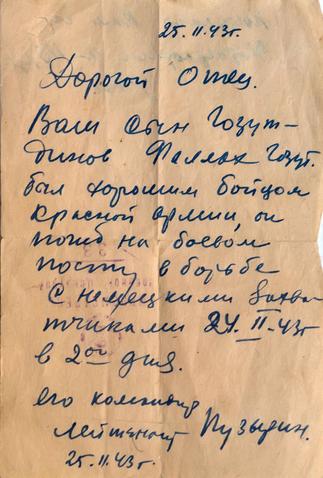 25.II.43г.
Дорогой Отец.
Ваш сын Гозут-
динов Фаллах Гозут.
был хорошим бойцом
Красной армии, он
погиб на боевом
посту в борьбе
с немецкими захва
тчиками 24.II-43г
в 2оо дня.
его командир
лейтенант Пузыдин.
25.II.43г.